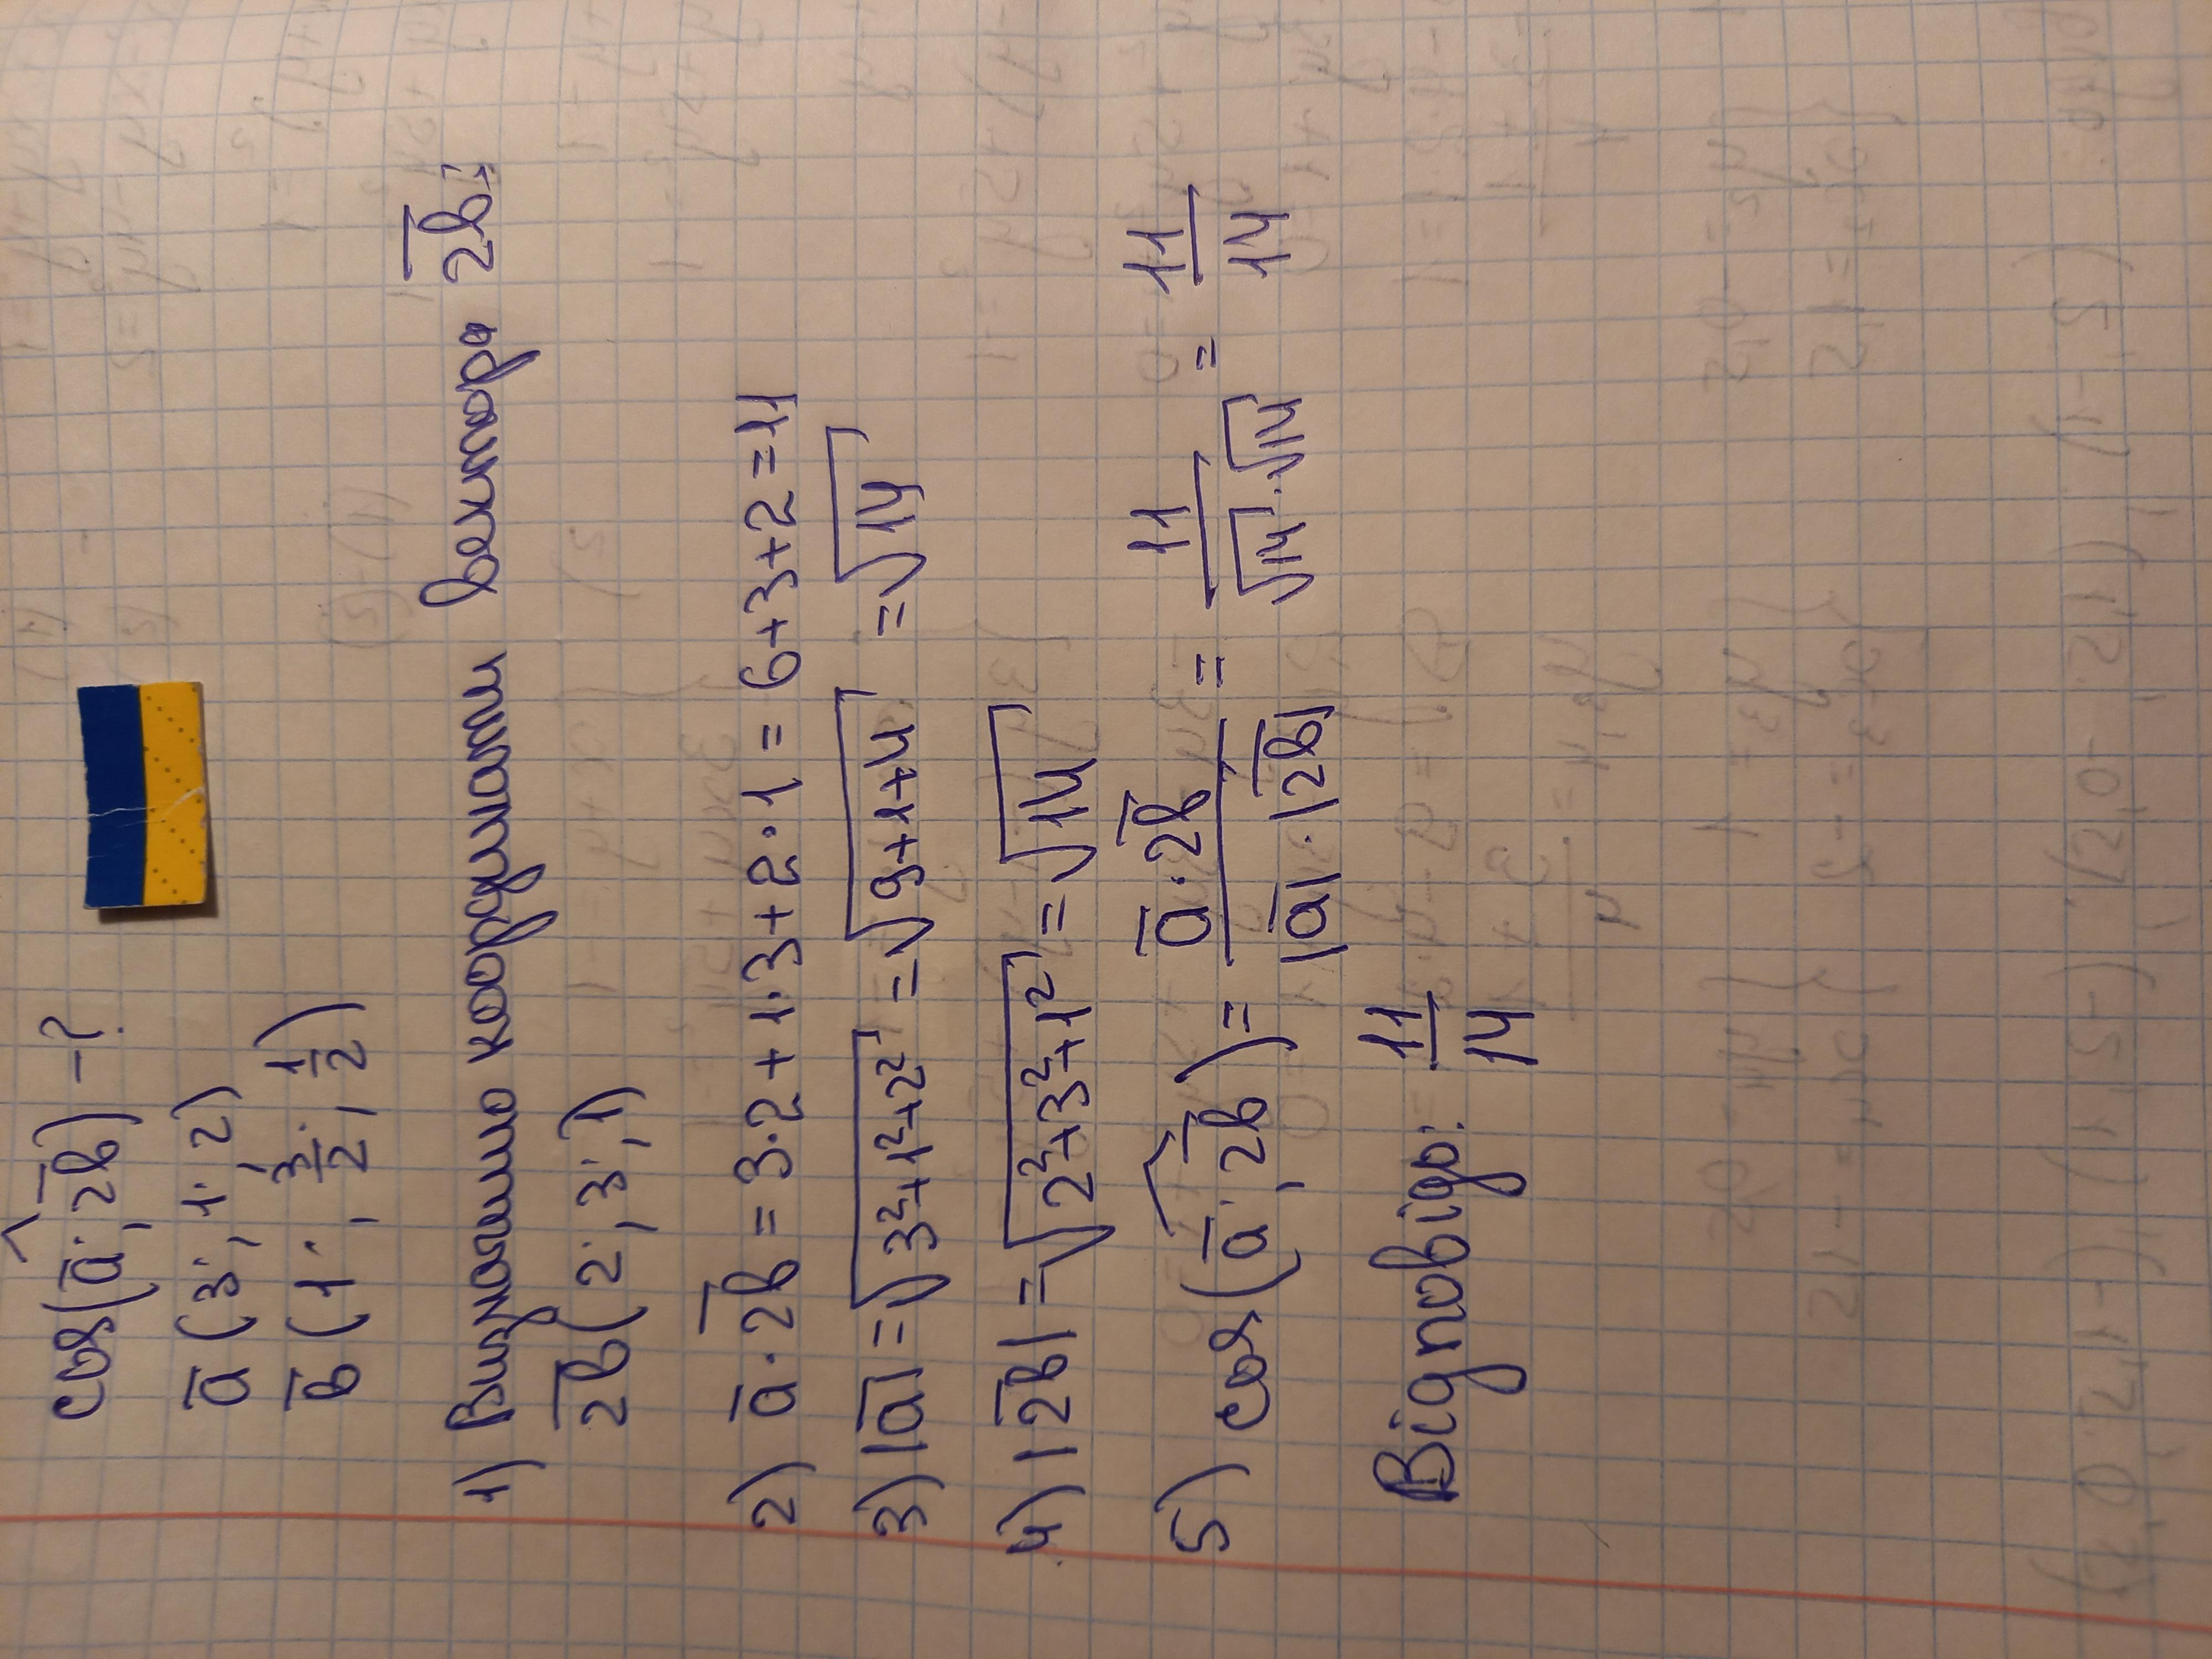 cos(a̅; 2b̅) - ?
a̅ (3; 1; 2)
b̅ (1; 3/2; 1/2)
1) Визначимо координати вектора 2b̅:
2b̅ (2; 3; 1)
2) a̅ · 2b̅ = 3·2 + 1·3 + 2·1 = 6+3+2 = 11
3) |a̅| = √(3²+1²+2²) = √(9+1+4) = √14
4) |2b̅| = √(2²+3²+1²) = √14
5) cos(a̅; 2b̅) = (a̅ · 2b̅)/(|a̅| · |2b̅|) = 11/(√14 · √14) = 11/14
Відповідь: 11/14